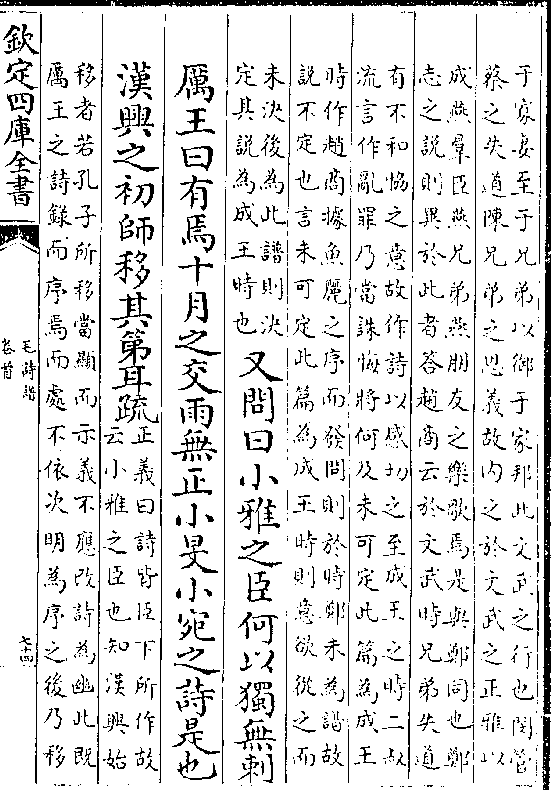 于寡妻至于兄弟以御于家邦此文武之行也閔管
蔡之失道陳兄弟之恩義故内之於文武之正雅以
成燕羣臣燕兄弟燕朋友之樂歌焉是與鄭同也鄭
志之說則異於此者答趙商云於文武時兄弟失道
有不和協之意故作詩以感切之至成王之時二叔
流言作亂罪乃當誅悔將何及未可定此篇為成王
時作趙商據魚麗之序而發問則於時鄭未為譜故
說不定也言未可定此篇為成王時則意欲從之而
未決後為此譜則決
定其說為成王時也
又問曰小雅之臣何以獨無刺
厲王曰有焉十月之交雨無正小旻小宛之詩是也
漢興之初師移其第耳疏
正義曰詩皆臣下所作故
云小雅之臣也知漢興始
移者若孔子所移當顯而示義不應改詩為幽此既
厲王之詩錄而序焉而處不依次明為序之後乃移
欽定四庫全書
毛詩譜
卷首
七十四